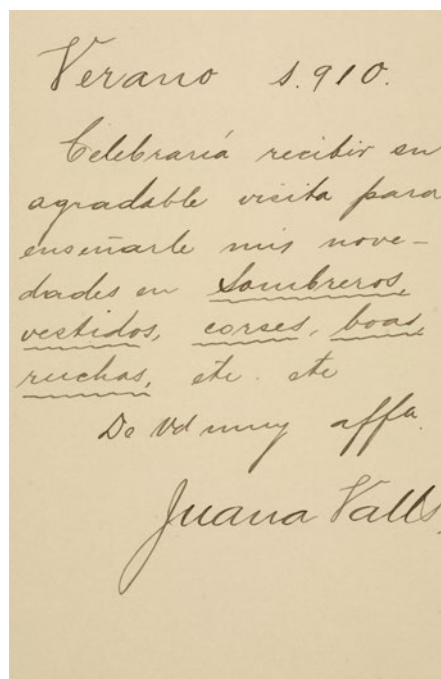 Verano 1.910.
Celebraría recibir su
agradable visita para
enseñarle mis nove-
dades en Sombreros,
vestidos, corses, boas,
ruchas, etc. etc
De Vd muy affa.
Juana Valls,